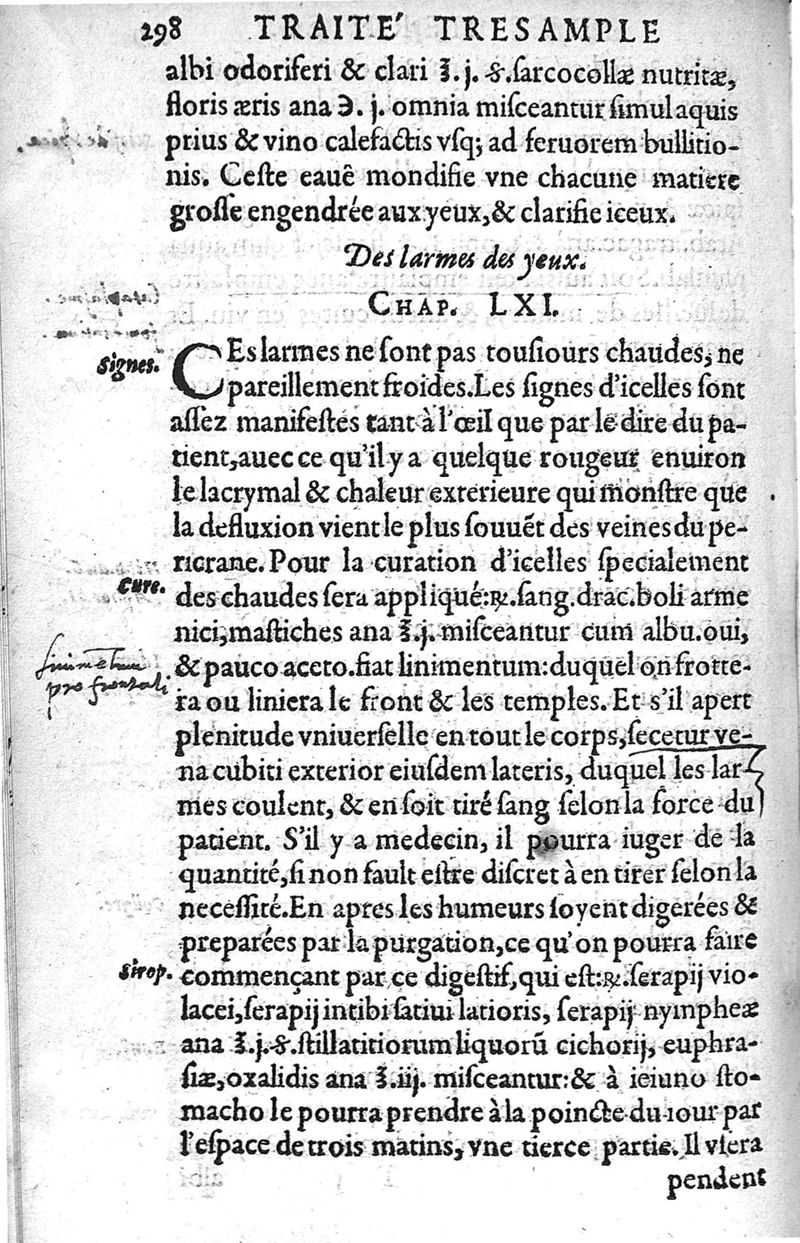 298 TRAITE' TRESAMPLE
albi odoriferi & clari ℥.j.&.ſarcocollæ nutritæ,
floris æris ana ℈.j. omnia miſceantur ſimul aquis
prius & vino calefactis vſq; ad feruorem bullitio-
nis. Ceſte eauë mondifie vne chacune matiere
groſſe engendrée aux yeux, & clarifie iceux.
Des larmes des yeux.
CHAP. LXI.
Signes.
CEs larmes ne ſont pas touſiours chaudes, ne
pareillement froides. Les ſignes d'icelles ſont
aſſez manifeſtes tant à l'œil que par le dire du pa-
tient, auec ce qu'il y a quelque rougeur enuiron
le lacrymal & chaleur exterieure qui monſtre que
la defluxion vient le plus ſouuẽt des veines du pe-
ricrane. Pour la curation d'icelles ſpecialement
Cure.
des chaudes ſera appliqué:℞.ſang.drac.boli arme
nici, maſtiches ana ℥.j. miſceantur cum albu.oui,
linimētum
pro frontali
& pauco aceto.fiat linimentum: duquel on frotte-
ra ou liniera le front & les temples. Et s'il apert
plenitude vniuerſelle en tout le corps, ſecetur ve-
na cubiti exterior eiuſdem lateris, duquel les lar-
mes coulent, & en ſoit tiré ſang ſelon la force du
patient. S'il y a medecin, il pourra iuger de la
quantité, ſi non fault eſtre diſcret à en tirer ſelon la
neceſſité. En apres les humeurs ſoyent digerées &
preparées par la purgation, ce qu'on pourra faire
Sirop.
commençant par ce digeſtif, qui eſt:℞.ſerapij vio-
lacei, ſerapij intibi ſatiui latioris, ſerapij nympheæ
ana ℥.j.&.ſtillatitiorum liquorũ cichorij, euphra-
ſiæ, oxalidis ana ℥.iij. miſceantur: & à ieiuno ſto-
macho le pourra prendre à la poincte du iour par
l'eſpace de trois matins, vne tierce partie. Il vſera
pendent